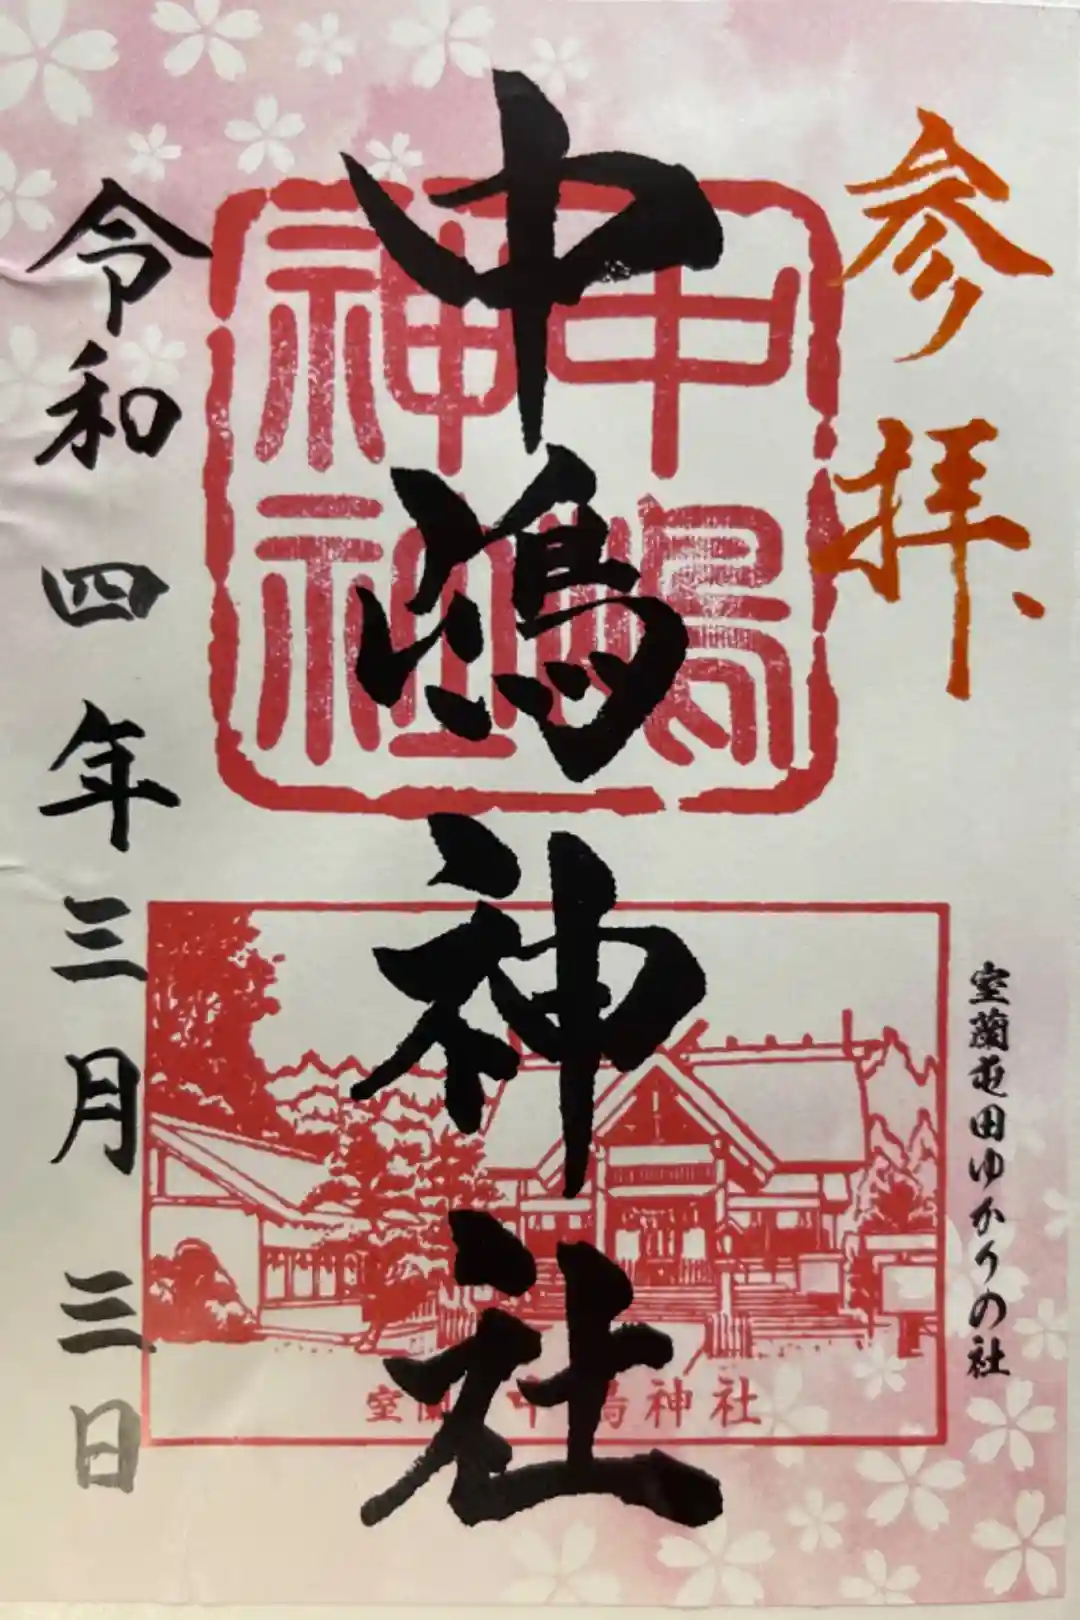 参拝
室蘭屯田ゆかりの社
中嶋神社
中嶋
神社
室蘭 中嶋神社
令和四年三月三日